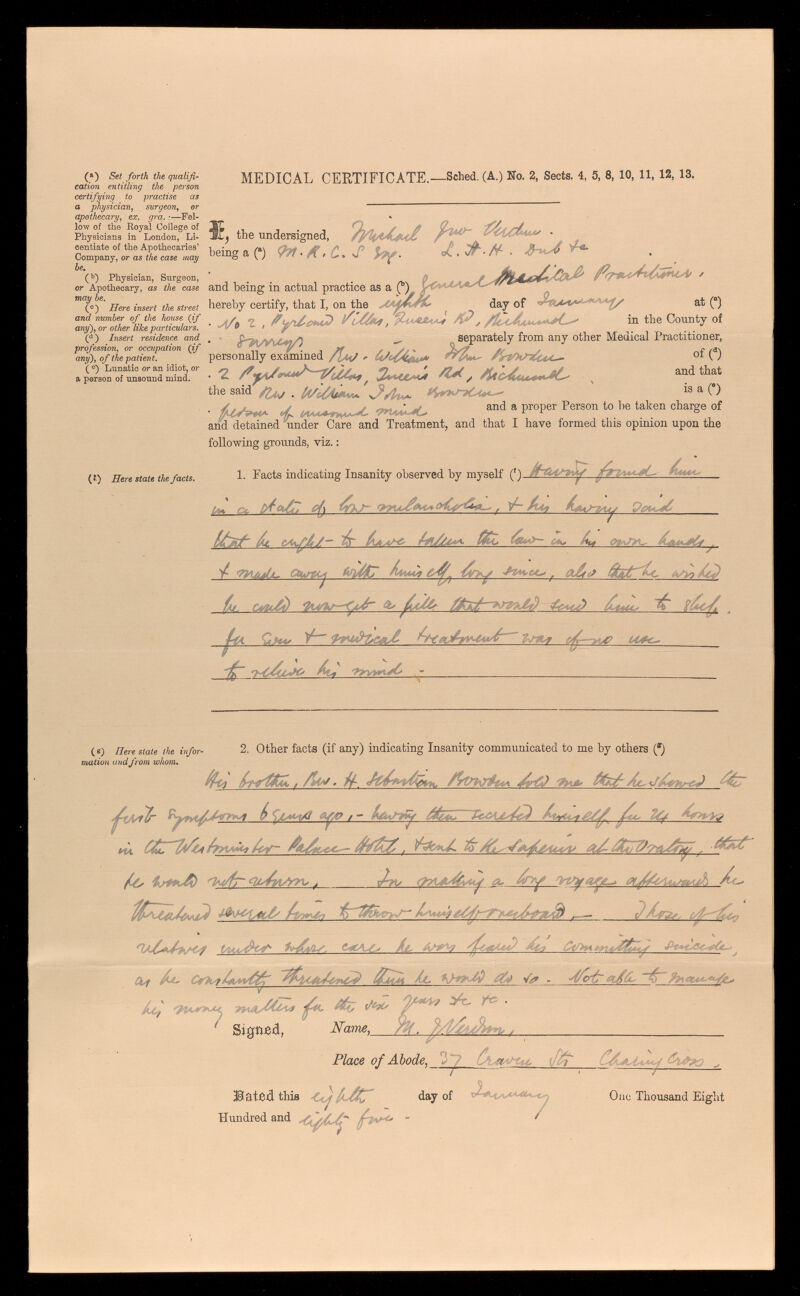 MEDICAL CERTIFICATE.—Sched. (A.) No. 2, Sects. 4, 5, 8, 10, 11, 12, 13.
(a) Set forth the qualifi-
cation entitling the person
certifying to practise as
a physician, surgeon, or
apothecary, ex. gra. :—Fel-
low of the Royal College of
Physicians in London, Li-
centiate of the Apothecaries'
Company, or as the case may
be.
(b) Physician, Surgeon,
or Apothecary, as the case
may be.
(c) Here insert the street
and number of the house (if
any), or other like particulars.
(d) Insert residence and
profession, or occupation (if
any), of the patient.
(e) Lunatic or an idiot, or
a person of unsound mind.
I, the undersigned, Michael Jno Verdun.
being a (a) M.R.C.S Eng. L.A.H. Dub &c
and being in actual practice as a (b) General Medical Practitioner,
hereby certify, that I, on the eighth day of January at (c)
No 2, Villas, Queen's Rd, Richmond in the County of
Surrey separately from any other Medical Practitioner,
personally examined Rev. William John Bowden of (d)
2 Villas, Queen's Rd, Richmond and that
the said Rev. William John Bowden is a (e)
person of unsound mind and a proper Person to be taken charge of
and detained under Care and Treatment, and that I have formed this opinion upon the
following grounds, viz.:
(f) Here state the facts.
1. Facts indicating Insanity observed by myself (f) Having found him
in a state of low melancholia, & his having said
that he ought to have taken the law in his own hands,
& made away with himself, long since, also that he wished
he could now get a pill that would send him to sleep.
for ever & medical treatment was of no use
to relieve his mind -
(g) Here state the infor-
mation and from whom.
2. Other facts (if any) indicating Insanity communicated to me by others (g)
His brother, Rev. H. Sebastian Bowden told me that he showed the
first symptoms 6 years ago, - having then secreted himself for 24 hours
in the Westminster Palace Hotel, & sent to the Superior at the Oratory, that
he would not return. In making a long voyage afterwards he
threatened several times to throw himself overboard, - Those of his
relatives under whose care he was feared his committing suicide,
as he constantly threatened them he would do so. Not able to manage
his money matters for the six years &c &c.
Signed, Name, M. J. Verdun,
Place of Abode, 37 Craven Str Charing Cross.
Dated this eighth day of January One Thousand Eight
Hundred and eighty five -